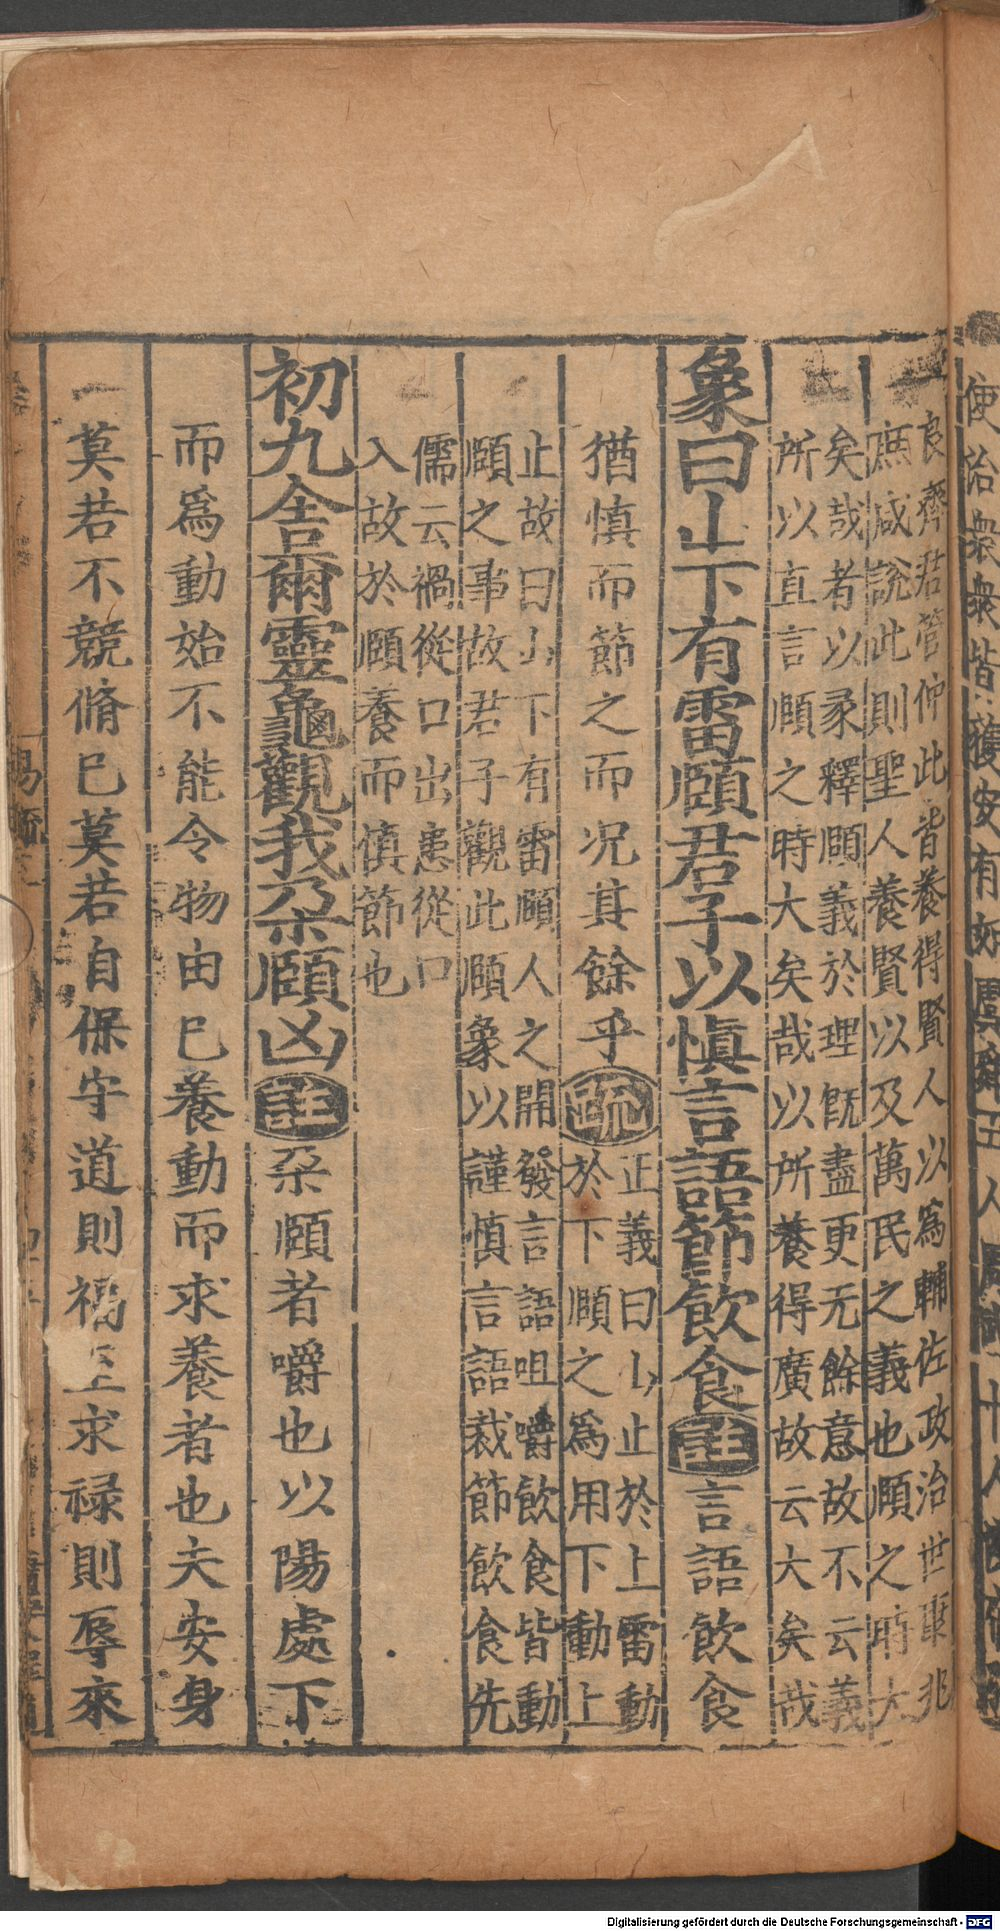 良齊君管仲此皆養得賢人以爲輔佐政治世康兆
庶咸說此則聖人養賢以及萬民之義也頤之時大
矣哉者以彖釋頤義於理旣盡更无餘意故不云義
所以直言頤之時大矣哉以所養得廣故云大矣哉
象曰山下有雷頤君子以愼言語節飲食註言語飲食
猶慎而節之而况其餘乎疏正義曰山止於上雷動
於下頤之爲用下動上
止故曰山下有雷頤人之開發言語咀嚼飲食皆動
頤之事故君子觀此頤象以謹慎言語裁節飲食先
儒云禍從口出患從口
入故於頤養而慎節也
初九舍爾靈龜觀我朶頤凶註朶頤者嚼也以陽處下
而爲動始不能令物由巳養動而求養者也夫安身
莫若不競脩巳莫若自保守道則福至求禄則辱來
Digitalisierung gefördert durch die Deutsche Forschungsgemeinschaft - DFG